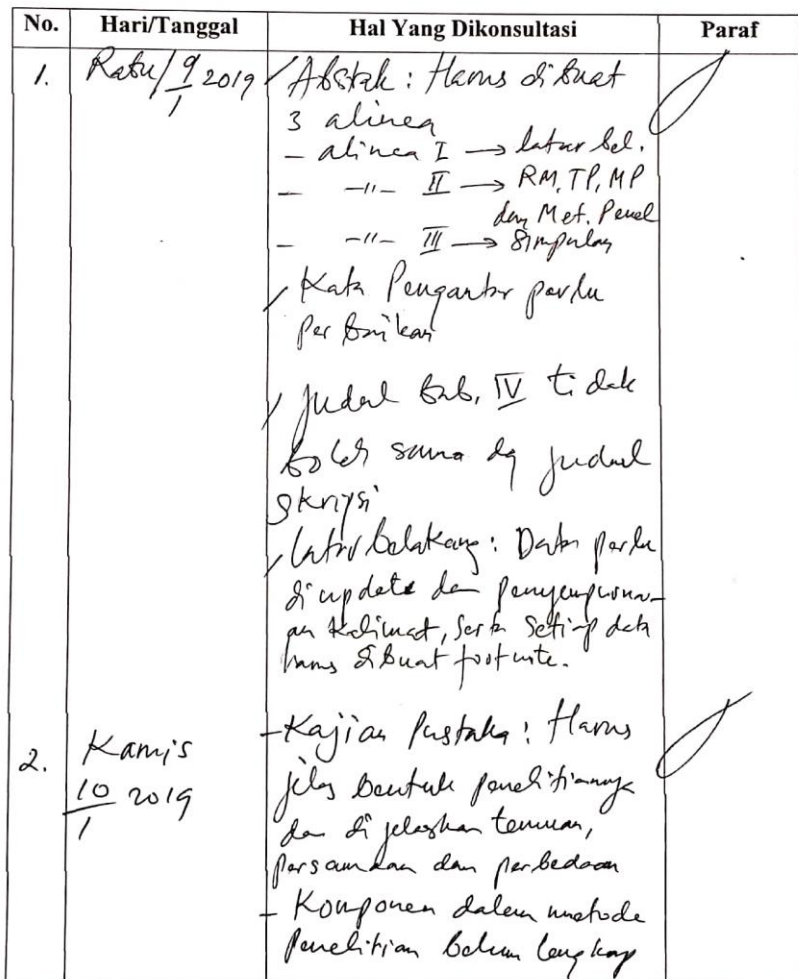 No. Hari/Tanggal Hal Yang Dikonsultasi Paraf
1. Rabu/ 9/1 2019 / Abstak : Harus dibuat
3 alinea
- alinea I → latar bel.
- -"- II → RM, TP, MP
dan Met. Penel
- -"- III → Simpulan
/ Kata Pengantar perlu
perbaikan
/ Judul Bab, IV tidak
boleh sama dg judul
skripsi
/ Latar belakang : Data perlu
diupdate dan penyempurna-
an kalimat, serta setiap data
harus dibuat footnote.
2. Kamis 10/1 2019 - Kajian Pustaka : Harus
jelas bentuk penelitiannya
dan dijelaskan temuan,
persamaan dan perbedaan
- Komponen dalam metode
penelitian belum lengkap